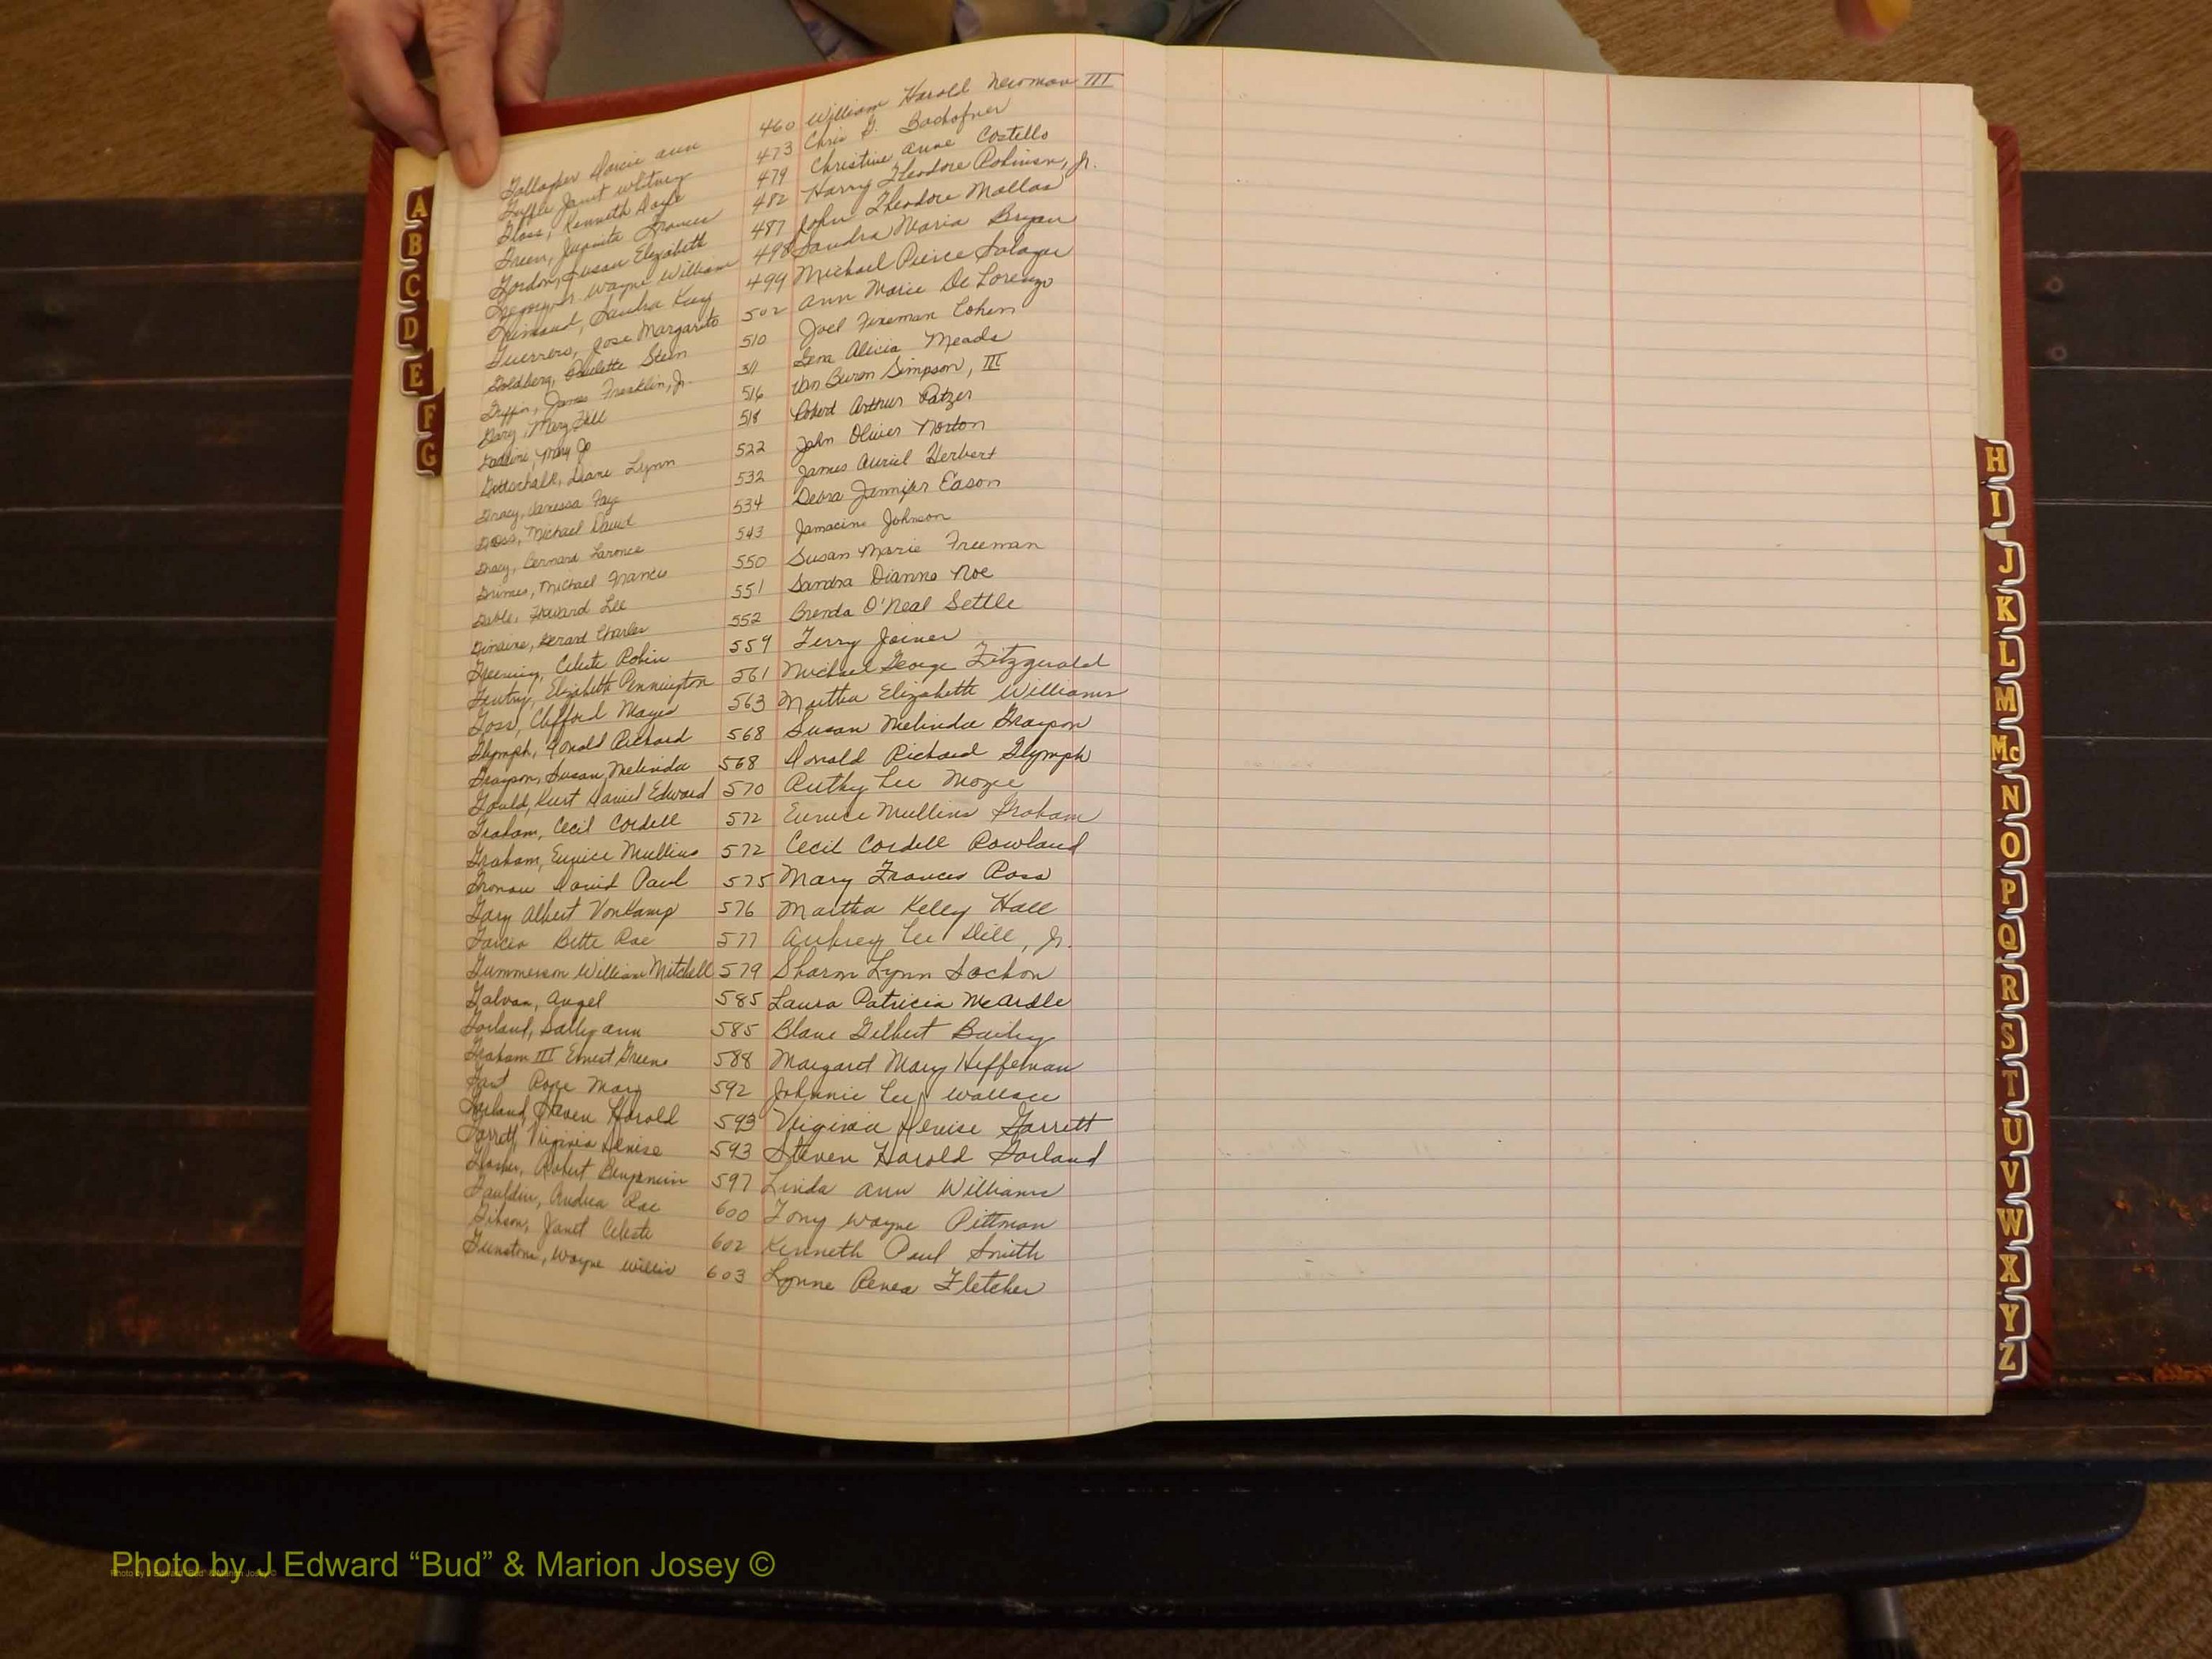 Gallagher Darcie Ann 460 William Harold Newman III
Janet Whitney 473 Chris G. Bachofner
Glass, Kenneth Doyle 479 Christine Anne Costello
Green, Juanita Frances 482 Harry Theodore Robinson, Jr.
Gordon, Susan Elizabeth 487 John Theodore Mallas
Gregory, Jr. Wayne William 498 Sandra Maria Bryan
Grimaud, Sandra Kay 499 Michael Pierce Salazar
Guerrero, Jose Margarito 502 Ann Marie De Lorenzo
Goldberg, Paulette Stern 510 Joel Fireman Cohen
Griffin, James Franklin, Jr. 511 Gena Alicia Meads
Gary, Mary Jill 516 Van Buren Simpson, III
Mary Jo 518 Robert Arthur Patzer
Gottschalk, Diane Lynn 522 John Oliver Norton
Gracy, Vanessa Fay 532 James Auriel Herbert
Goss, Michael David 534 Debra Jennifer Eason
Gracy, Bernard Laronce 543 Jamacine Johnson
Grimes, Michael Francis 550 Susan Marie Freeman
Goble, Howard Lee 551 Sandra Dianne Noe
Gerard Charles 552 Brenda O'Neal Settle
Greening, Celeste Robin 559 Terry Joiner
Gentry, Elizabeth Pennington 561 Michael George Fitzgerald
Goss, Clifford Mayes 563 Martha Elizabeth Williams
Glymph, Donald Richard 568 Susan Melinda Grayson
Grayson, Susan Melinda 568 Donald Richard Glymph
Gould, Kurt Daniel Edward 570 Ruthy Lee Mozee
Graham, Cecil Cordell 572 Eunice Mullins Graham
Graham, Eunice Mullins 572 Cecil Cordell Rowland
Gronau David Paul 575 Mary Frances Ross
Gary Albert VonKamp 576 Martha Kelly Hall
Garcia Bette Rae 577 Aubrey Lee Dill, Jr.
Gummerson William Mitchell 579 Sharon Lynn Sochon
Galvan, Angel 585 Laura Patricia McArdle
Garland, Sally Ann 585 Blane Gilbert Bailey
Graham III Ernest Greene 588 Margaret Mary Heffelman
Gant Rose Mary 592 Johnnie Lee Wallace
Garland, Steven Harold 593 Virginia Denise Garrett
Garrett, Virginia Denise 593 Steven Harold Garland
Robert Benjamin 597 Linda Ann Williams
Gauldin, Andrea Rae 600 Tony Wayne Pittman
Gibson, Janet Celeste 602 Kenneth Paul Smith
Wayne Willis 603 Lynne Renea Fletcher
A
B
C
D
E
F
G
H
I
J
K
L
M
Mc
N
O
P
Q
R
S
T
U
V
W
X
Y
Z
Photo by J Edward “Bud” & Marion Josey ©
Photo by J Edward “Bud” & Marion Josey ©